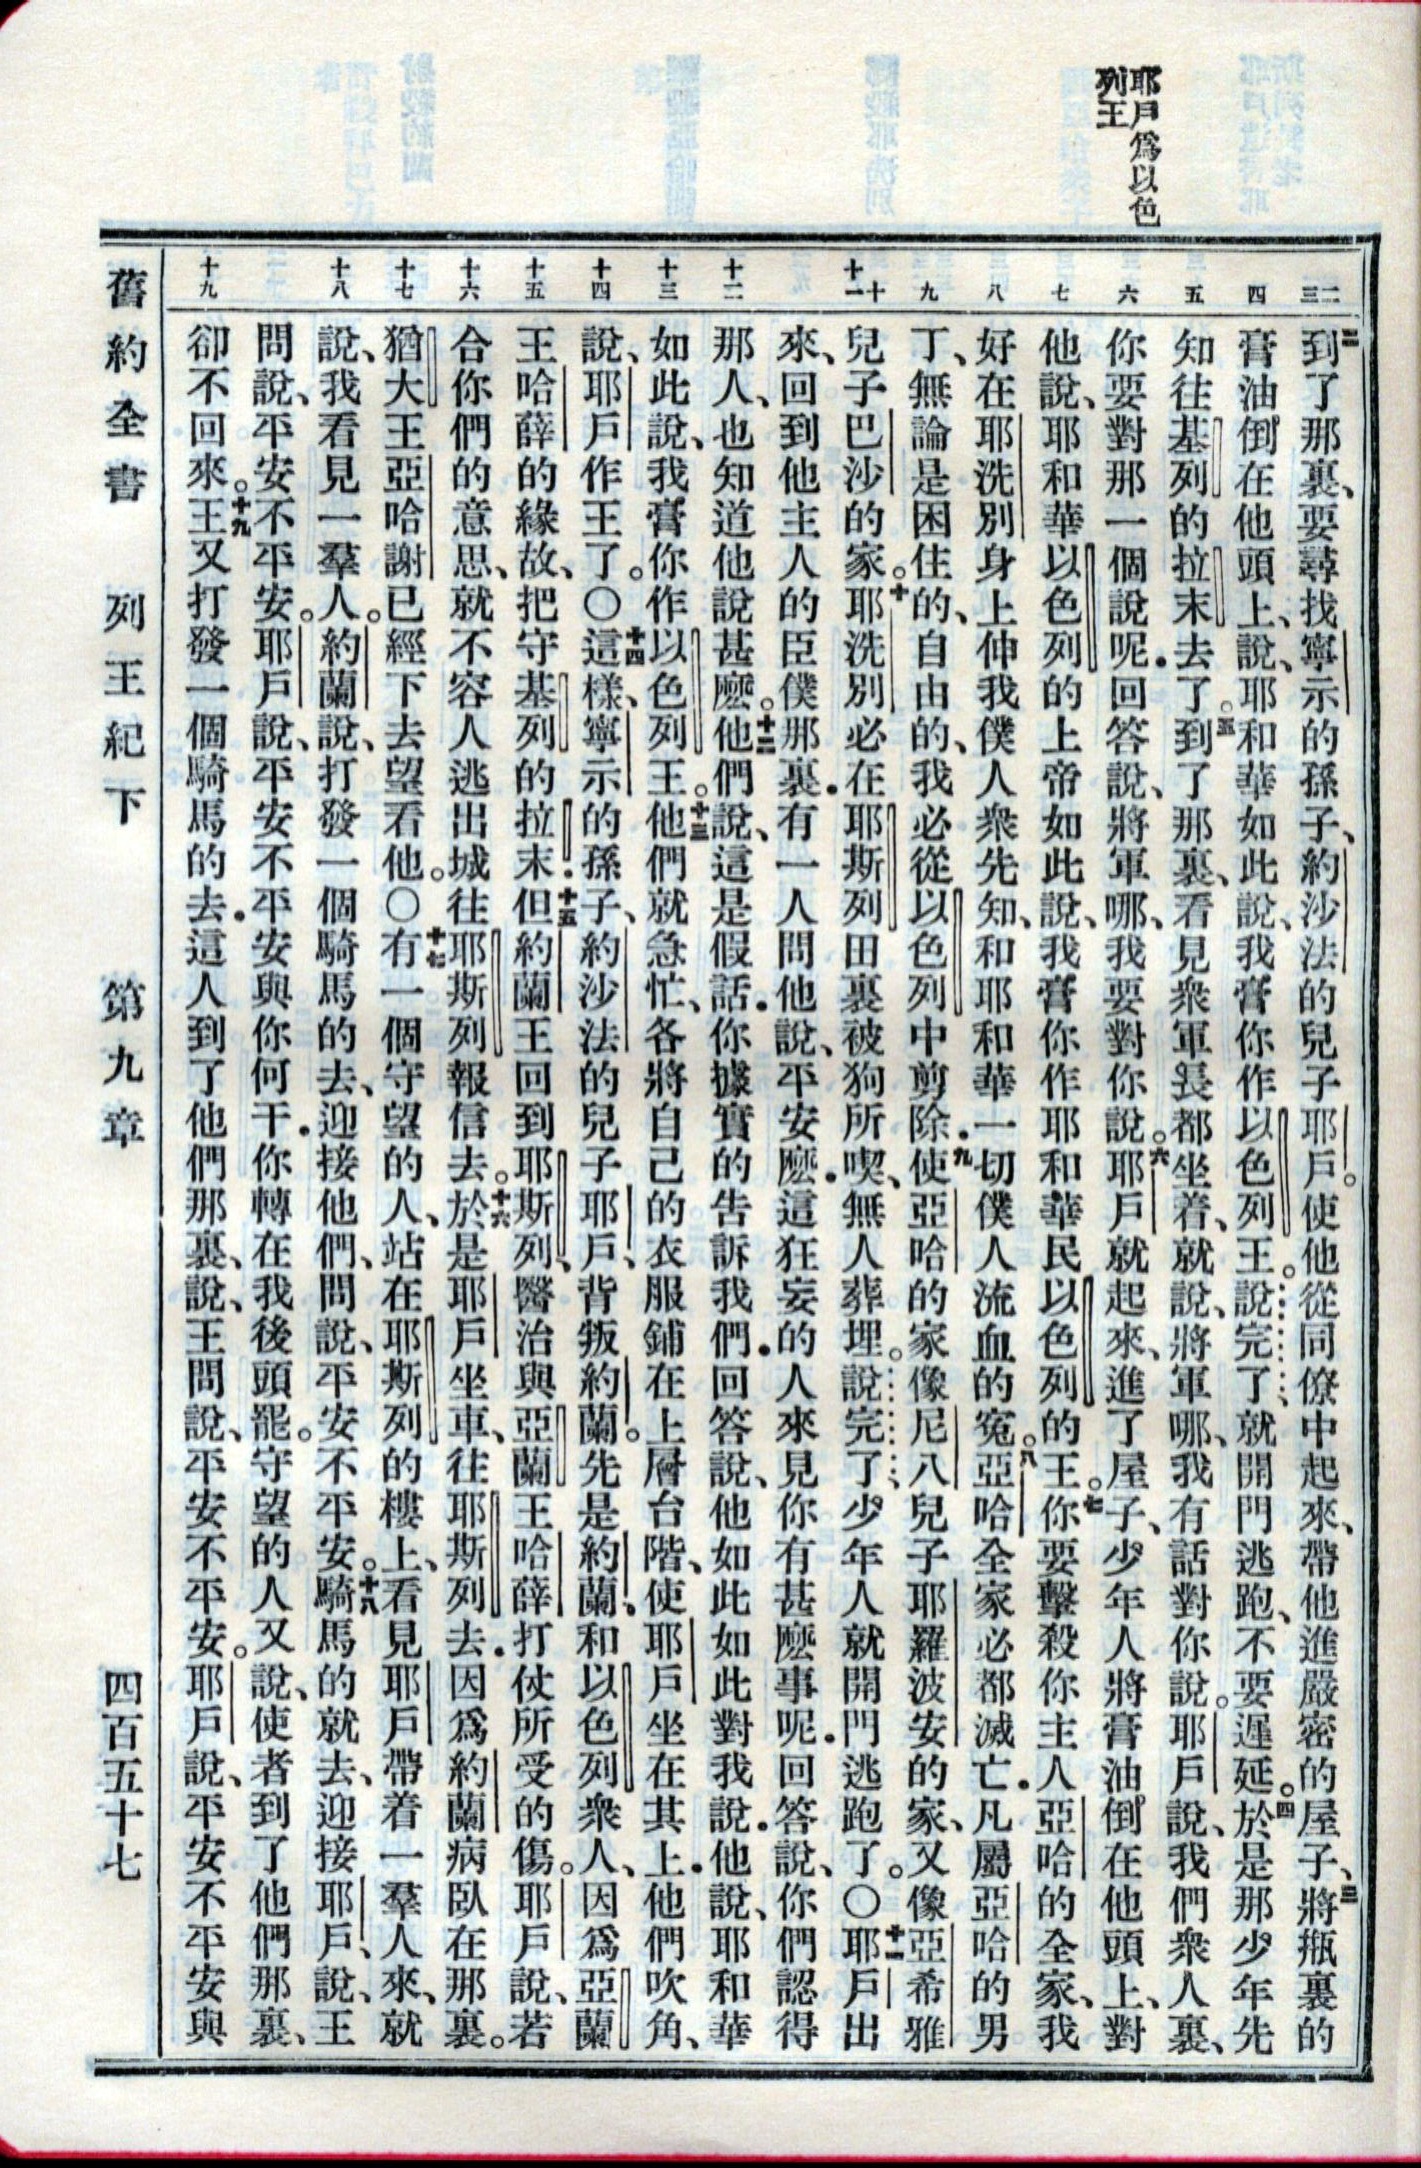 耶戶爲以色
列王
二三 四 五 六 七 八 九 十十一 十二 十三 十四 十五 十六 十七 十八 十九
二到了那裏、要尋找寧示的孫子、約沙法的兒子耶戶。使他從同僚中起來、帶他進嚴密的屋子、三將瓶裏的
膏油倒在他頭上、說、耶和華如此說、我膏你作以色列王。說完了、就開門逃跑、不要遲延。四於是那少年先
知往基列的拉末去了。五到了那裏、看見衆軍長都坐着、就說、將軍哪、我有話對你說。耶戶說、我們衆人裏、
你要對那一個說呢．回答說、將軍哪、我要對你說。六耶戶就起來、進了屋子、少年人將膏油倒在他頭上、對
他說、耶和華以色列的上帝如此說、我膏你作耶和華民以色列的王。七你要擊殺你主人亞哈的全家、我
好在耶洗別身上伸我僕人衆先知、和耶和華一切僕人流血的寃。八亞哈全家必都滅亡．凡屬亞哈的男
丁、無論是困住的、自由的、我必從以色列中剪除．九使亞哈的家像尼八兒子耶羅波安的家、又像亞希雅
兒子巴沙的家。十耶洗別必在耶斯列田裏被狗所喫、無人葬埋。說完了、少年人就開門逃跑了。〇十一耶戶出
來、回到他主人的臣僕那裏．有一人問他說、平安麽．這狂妄的人來見你有甚麽事呢．回答說、你們認得
那人、也知道他說甚麽。十二他們說、這是假話．你據實的告訴我們．回答說、他如此如此對我說．他說、耶和華
如此說、我膏你作以色列王。十三他們就急忙、各將自己的衣服鋪在上層台階、使耶戶坐在其上．他們吹角、
說、耶戶作王了。〇十四這樣、寧示的孫子、約沙法的兒子耶戶、背叛約蘭。先是約蘭．和以色列衆人、因爲亞蘭
王哈薛的緣故、把守基列的拉末．十五但約蘭王回到耶斯列、醫治與亞蘭王哈薛打仗所受的傷。耶戶說、若
合你們的意思、就不容人逃出城往耶斯列報信去。十六於是耶戶坐車、往耶斯列去．因爲約蘭病臥在那裏。
猶大王亞哈謝已經下去望看他。〇十七有一個守望的人、站在耶斯列的樓上、看見耶戶帶着一羣人來、就
說、我看見一羣人。約蘭說、打發一個騎馬的去、迎接他們、問說、平安不平安。十八騎馬的就去、迎接耶戶、說、王
問說、平安不平安。耶戶說、平安不平安與你何干．你轉在我後頭罷。守望的人又說、使者到了他們那裏、
卻不回來。十九王又打發一個騎馬的去．這人到了他們那裏、說、王問說、平安不平安。耶戶說、平安不平安與
舊約全書 列王紀下 第九章 四百五十七